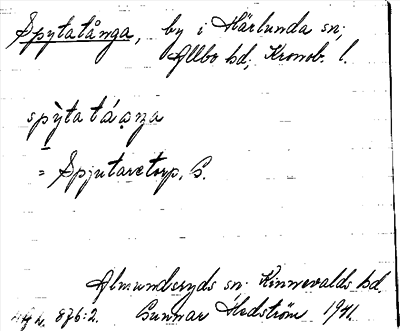 Spytatånga, by i Härlunda sn;
Allbo hd; Kronob. l.
spỳta táǫŋa
= Spjutaretorp, S.
Almundsryds sn. Kinnevalds hd.
876:2. Gunnar Hedström 1941.